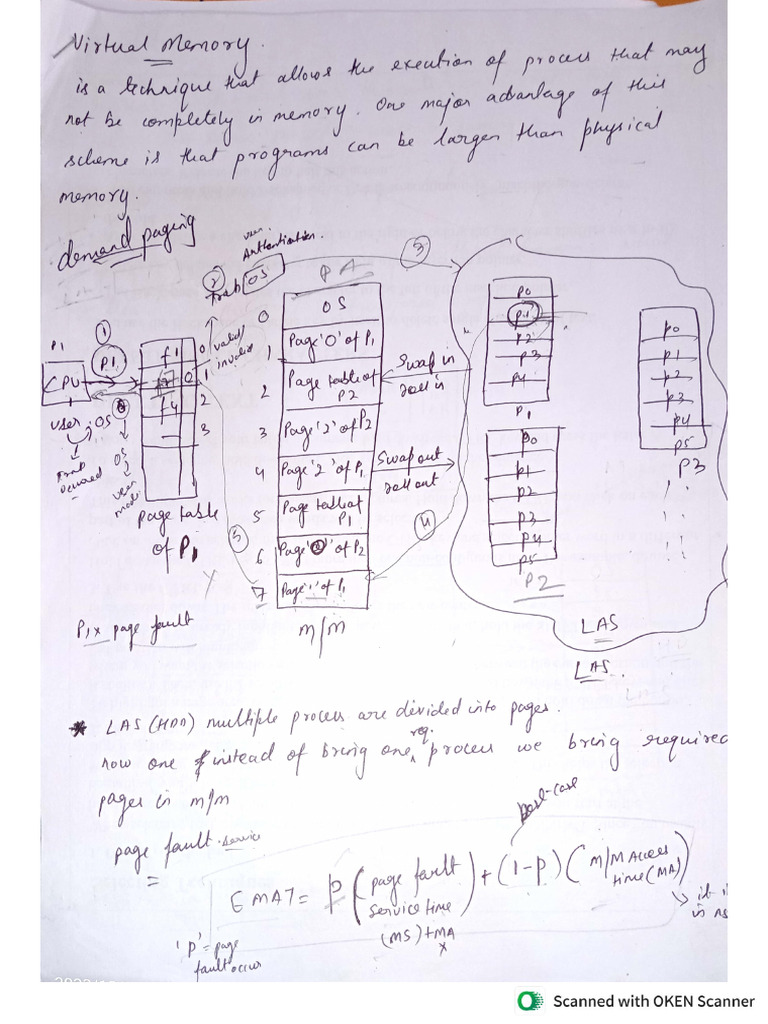 Virtual Memory.
is a technique that allows the execution of process that may
not be completely in memory. One major advantage of this
scheme is that programs can be larger than physical
memory.
demand paging
Authentication.
2
Trab OS
3
PA
P1
1
P1
CPU
user OS
OS
user
mode
f1 0
0 1
f4 2
3
valid
invalid
page table
of P1
5
0 OS
1 Page '0' of P1
2 Page table of P2
3 Page '2' of P2
4 Page '2' of P1
5 Page table of P1
6 Page of P2
7 Page '1' of P1
m/m
Swap in
roll in
Swap out
roll out
4
P0
P1
P2
P3
P4
P1
P0
P1
P2
P3
P4
P5
P2
P0
P1
P2
P3
P4
P5
P3
LAS
LAS.
P1 x page fault
* LAS (HDD) multiple process are divided into pages.
now one instead of bring one req. process we bring required
pages in m/m
page fault service
best-case
EMAT = P (page fault service time) + (1-P) (M/M Access time (MA))
(MS) + MA
x
'P' = page
fault occur
it i
in ns
Scanned with OKEN Scanner